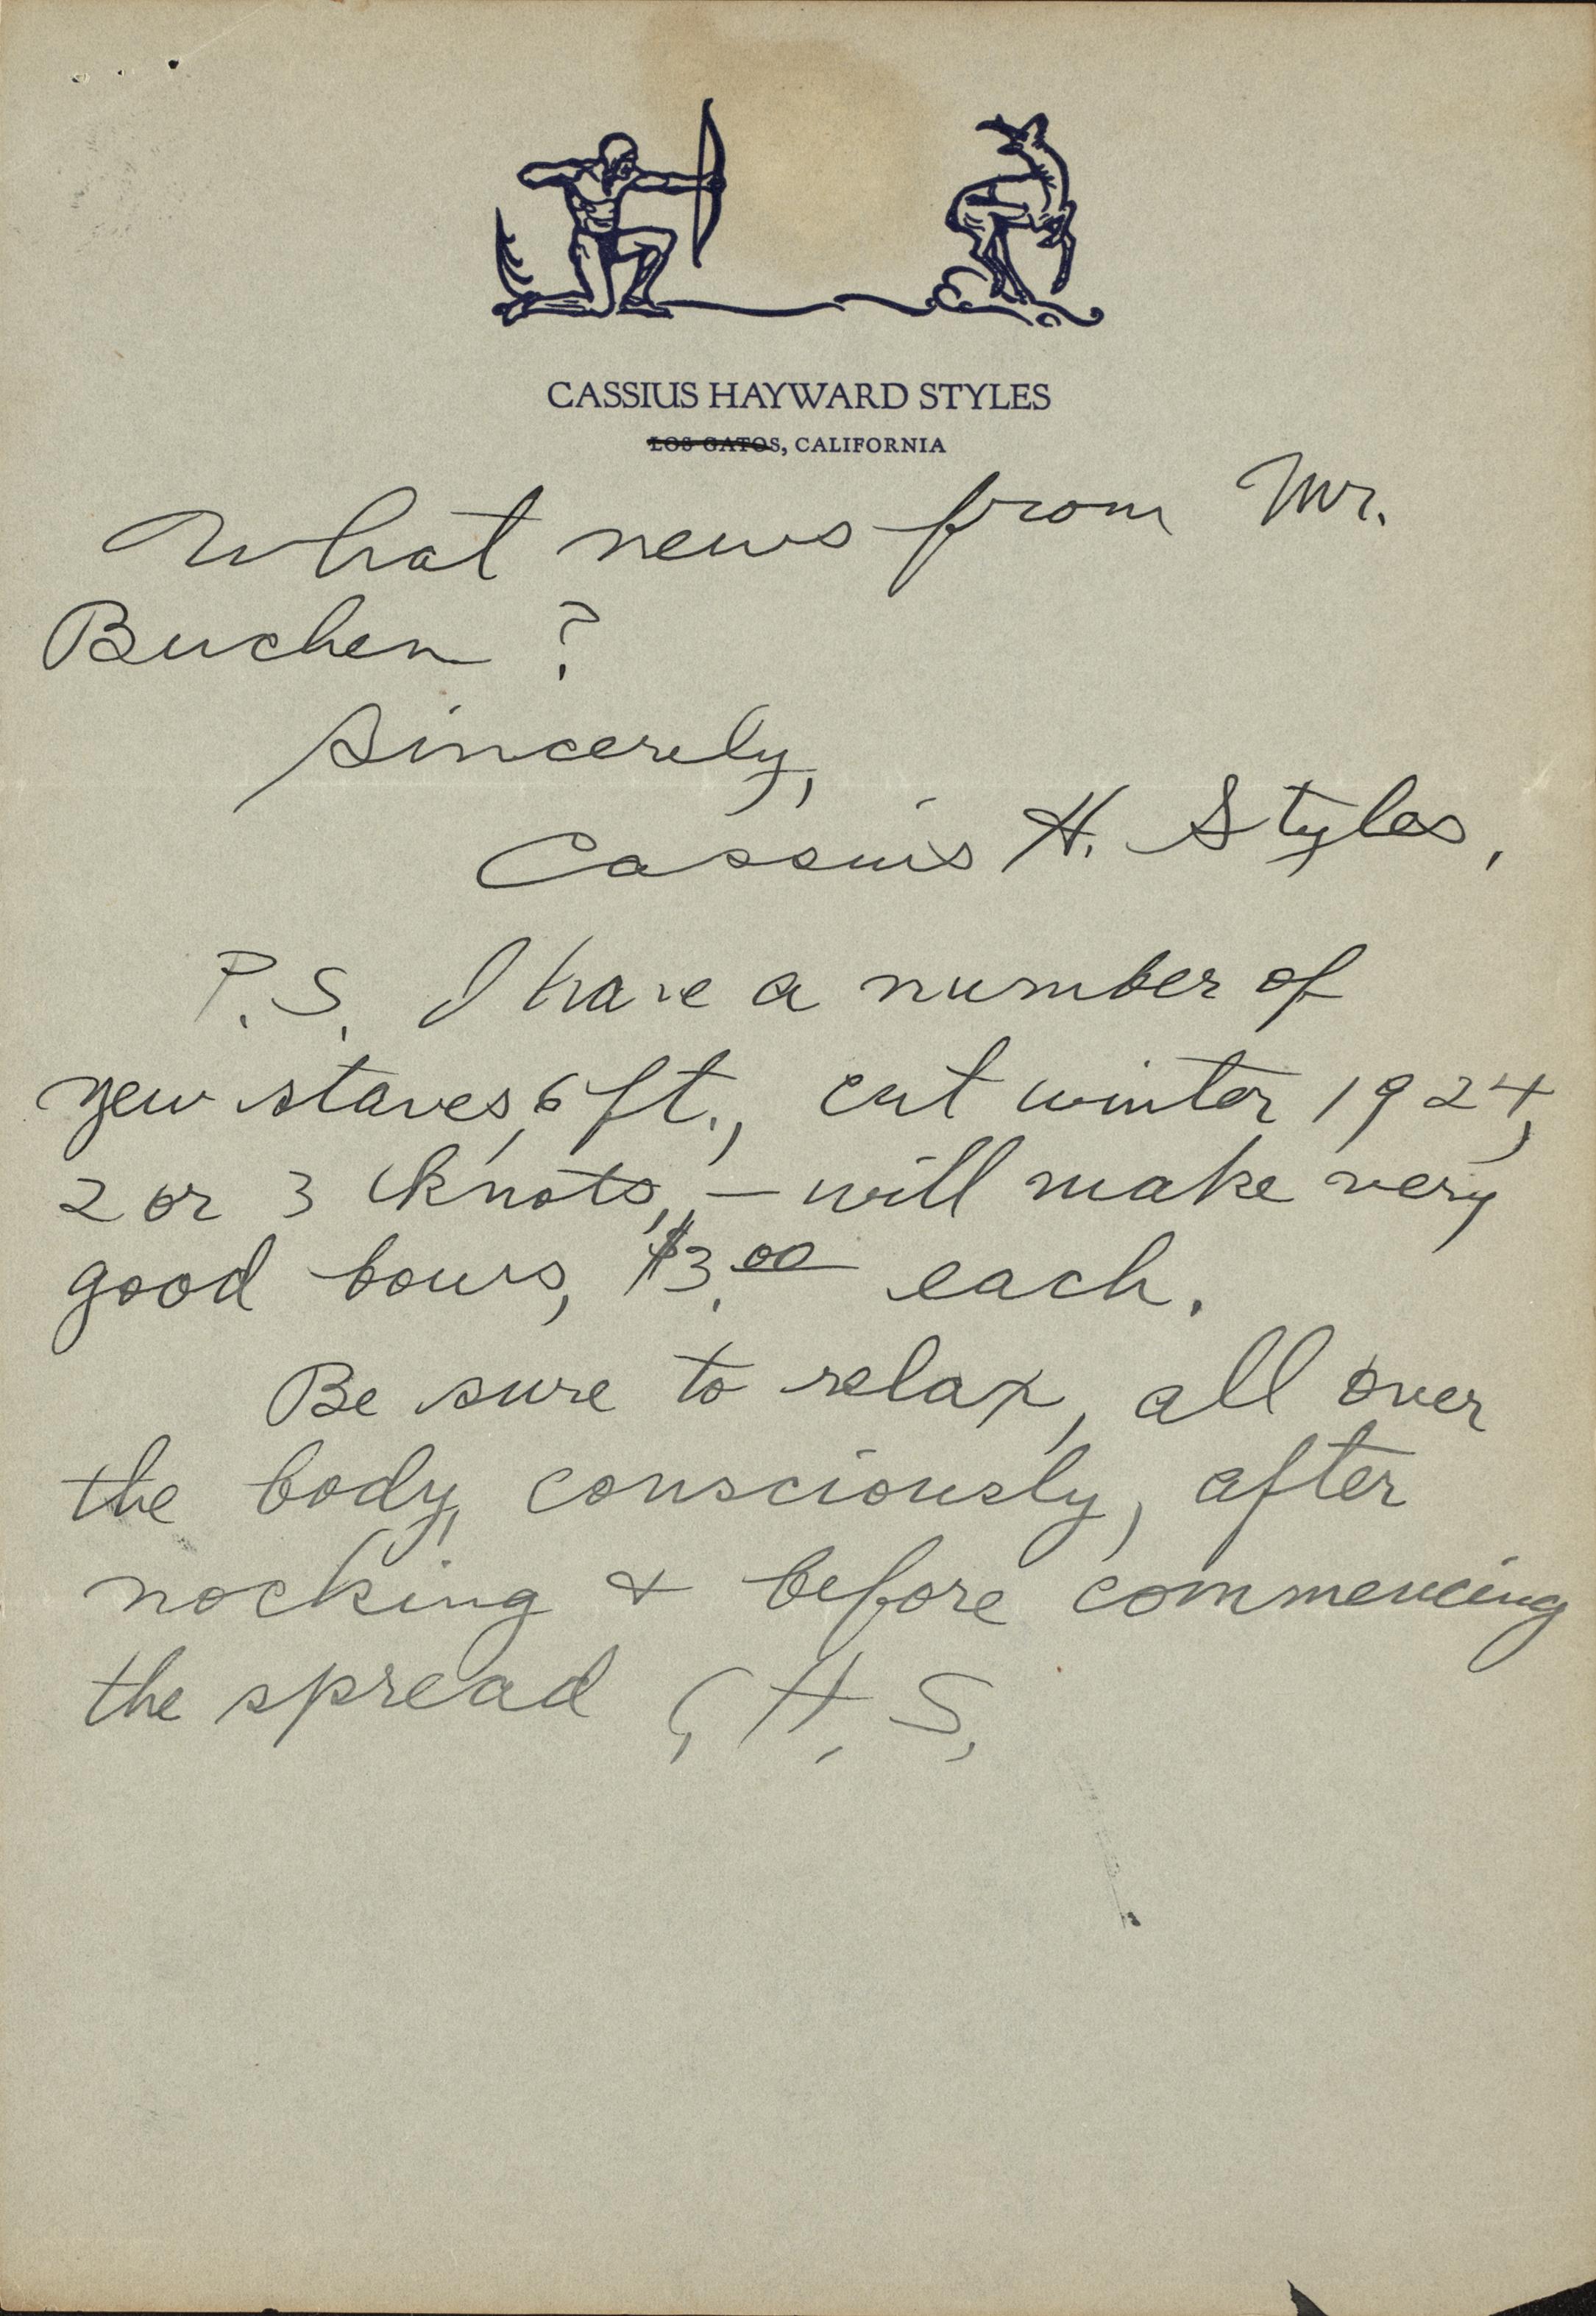 CASSIUS HAYWARD STYLES
LOS GATOS, CALIFORNIA
What news from Mr.
Buchen ?
Sincerely,
Cassius H. Styles,
P.S. I have a number of
yew staves, 6 ft., cut winter 1924,
2 or 3 knots, — will make very
good bows, $3.00 each.
Be sure to relax, all over
the body, consciously, after
nocking & before commencing
the spread C, H, S,